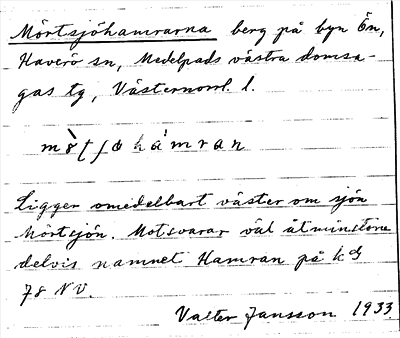 Mörtsjöhamrarna berg på byn Ön,
Haverö sn, Medelpads västra domsa-
gas tg, Västernorrl. l.
hámran
Ligger omedelbart väster om sjön
Mörtsjön. Motsvarar väl åtminstone
delvis namnet Hamran på
78 NV.
Valter Jansson 1933